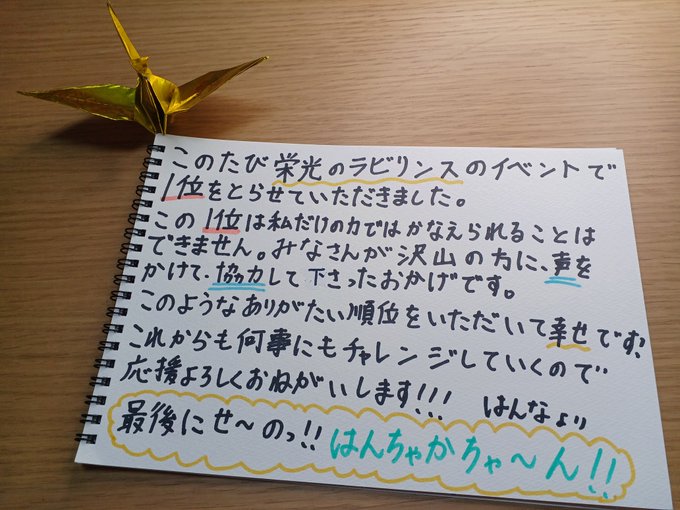 このたび栄光のラビリンスのイベントで
1位をとらせていただきました。
この1位は私だけの力ではかなえられることは
できません。みなさんが沢山の方に、声を
かけて、協力して下さったおかげです。
このようなありがたい順位をいただいて幸せです。
これからも何事にもチャレンジしていくので
応援よろしくおねがいします!!! はんなより
最後にせ～のっ!! はんちゃかちゃ～ん!!